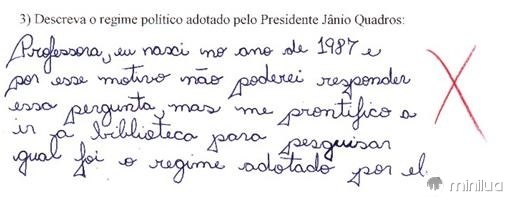 3) Descreva o regime político adotado pelo Presidente Jânio Quadros:
Professora, eu nasci no ano de 1987 e
por esse motivo não poderei responder
essa pergunta, mas me prontifico a
ir à biblioteca para pesquisar
qual foi o regime adotado por el
minilua